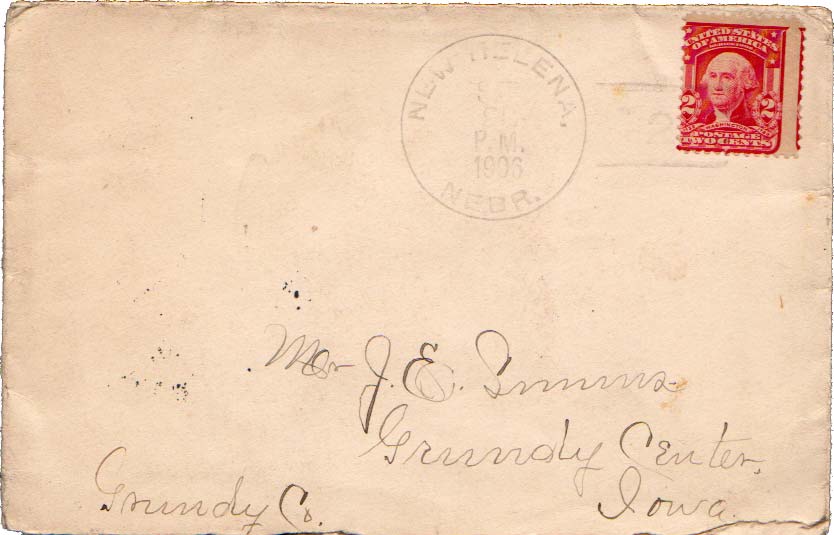 NEW HELENA,
P.M.
1906
NEBR.
UNITED STATES
OF AMERICA
2 2
WASHINGTON
POSTAGE
TWO CENTS
Mr J. E. Simms
Grundy Center,
Iowa
Grundy Co.